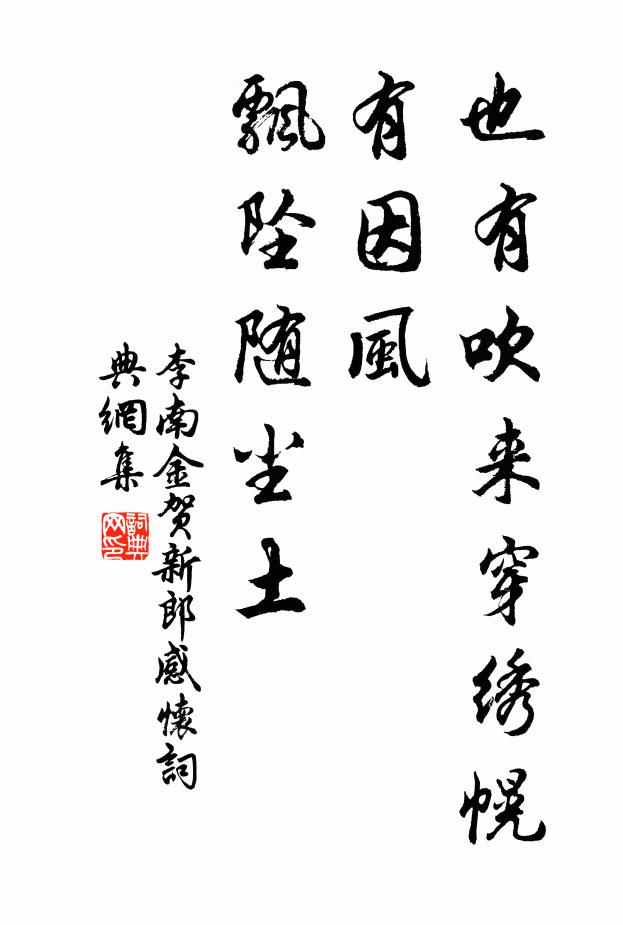 也有吹来穿绣幌
有因風
飄坠随尘土
李南金贺新郎感懷詞
典網集
詞典网印